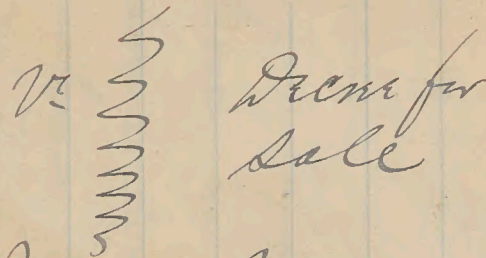 Vs Decree for
Sale